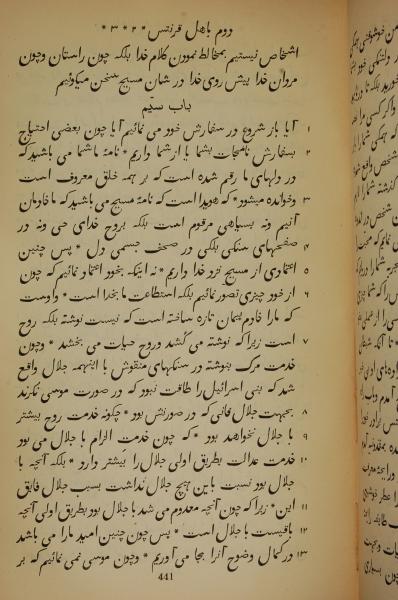 دوم باهل قرنتس * ۲ * ۳ *
اشخاص نیستیم بمخالط نمودن کلام خدا بلکه چون راستان وچون
مردان خدا پیش روی خدا در شان مسیح سخن میکوئیم
باب سیّم
۱ آیا باز شروع در سفارش خود می نمائیم آیا چون بعضی احتیاج
۲ بسفارش نامجات بشما یا از شما داریم * نامهٔ ما شما می باشید که
در دلهای ما رقم شده است که بر همه خلق معروف است
۳ وخوانده میشود * که هویدا است که نامهٔ مسیح می باشید که ما خادمان
آنیم ونه بسیاهی مرقوم است بلکه بروح خدای حی ونه در
۴ صفحهای سنکی بلکی در صحف جسمی دل * پس چنین
۵ اعتمادی از مسیح نزد خدا داریم * نه اینکه بخود اعتماد نمائیم که چون
۶ از خود چیزی تصور نمائیم بلکه استطاعت ما بخدا است * واوست
که مارا خادم پیمان تازه ساخته است که نیست نوشته بلکه روح
۷ است زیرا که نوشته می کُشد وروح حیات می بخشد * وچون
خدمت مرک بنوشته در سنکهای منقوش با اینهمه جلال واقع
شد که بنی اسرائیل را طاقت نبود که در صورت موسی نکرند
۸ بجهت جلال فانی که در صورتش بود * چکونه خدمت روح بیشتر
۹ با جلال نخواهد بود * که چون خدمت الزام با جلال می بود
۱۰ خدمت عدالت بطریق اولی جلال را بیشتر دارد * بلکه آنچه با
جلال بود نسبت باین هیچ جلال نداشت بسبب جلال فایق
۱۱ این * زیرا که چون آنچه معدوم می شد با جلال بود بطریق اولی آنچه
۱۲ باقیست با جلال است * پس چون چنین امید مارا می باشد
۱۳ در کمال وضوح آنرا بجا می آوریم * وچون موسی نمی نمائیم که بر
441